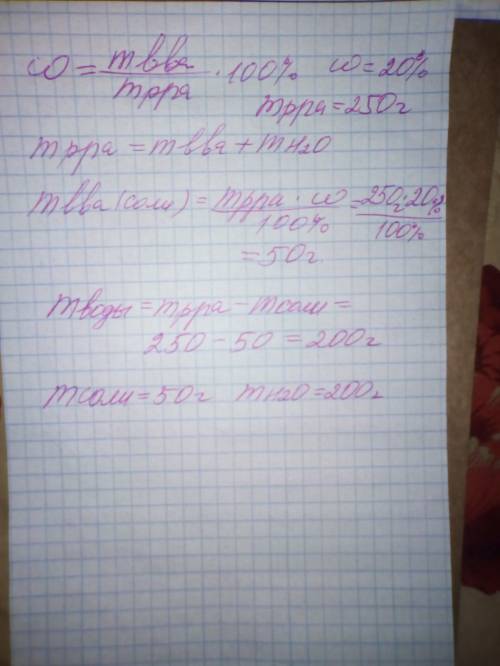 ω = mвва/mрра · 100% ω = 20%
mрра = 250г
mрра = mвва + mH2O
mвва (соли) = mрра · ω/100% = 250г · 20%/100%
= 50г
mводы = mрра - mсоли =
250 - 50 = 200г
mсоли = 50г mH2O = 200г